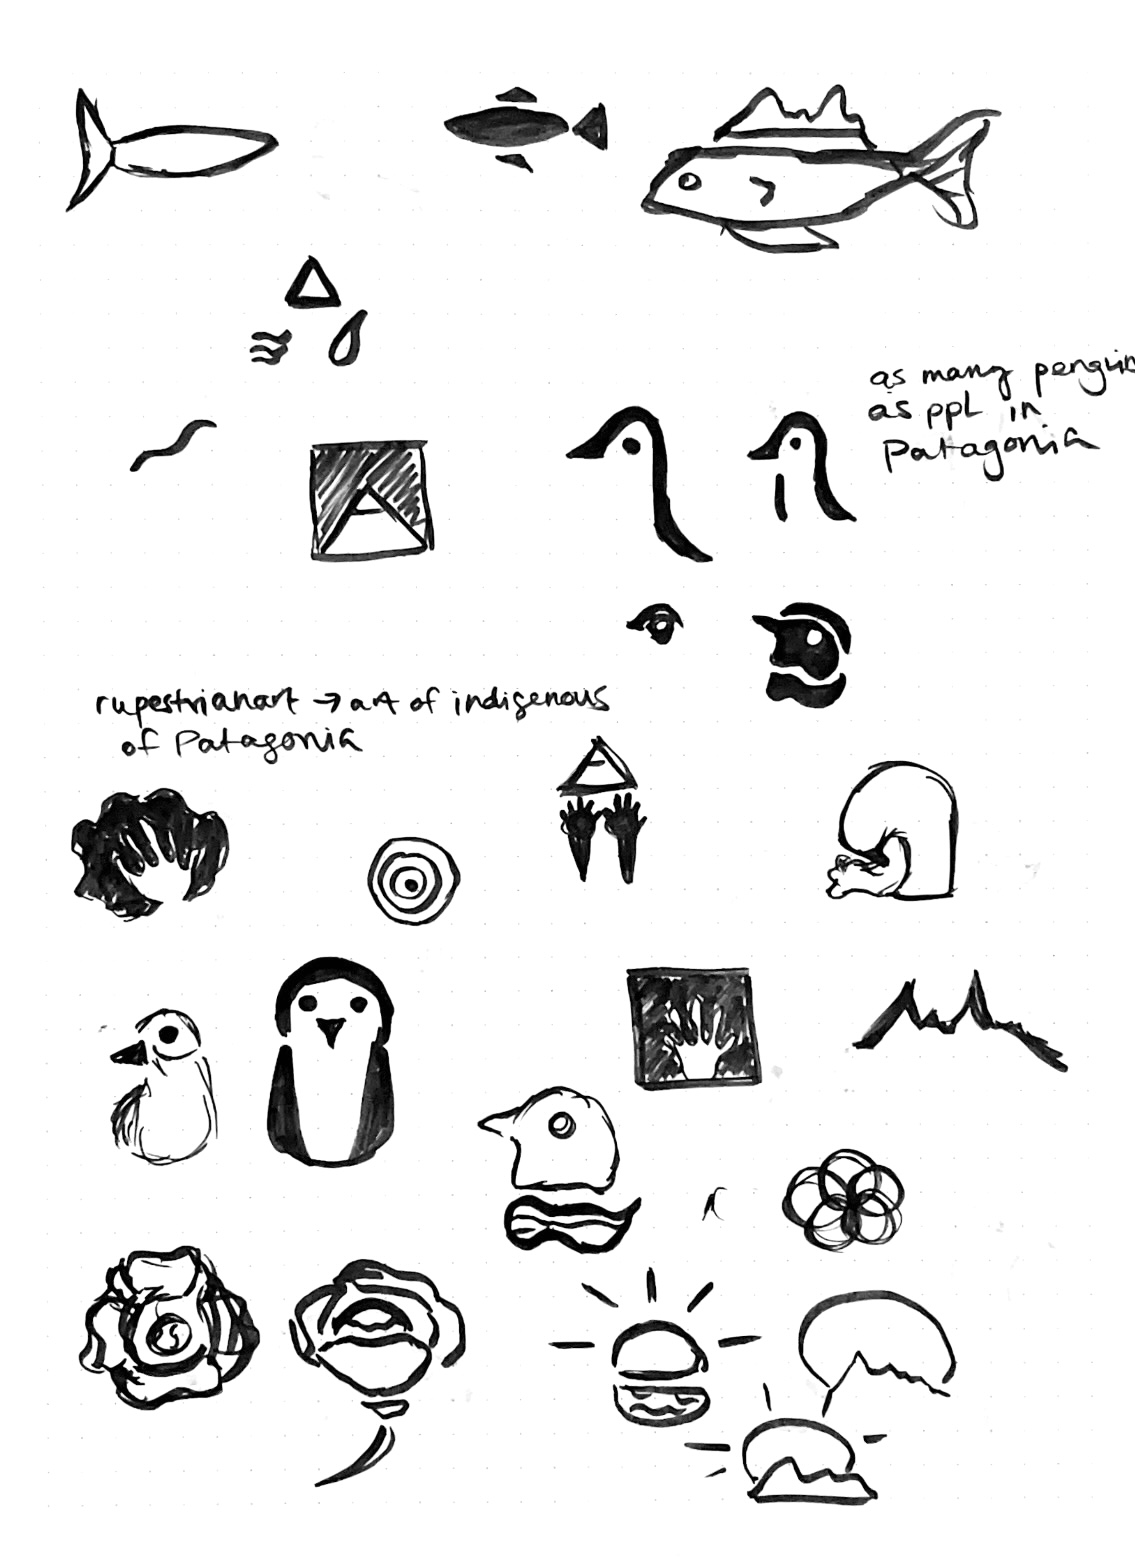 as many penguin
as ppl in
Patagonia
rupestrian art → art of indigenous
of Patagonia